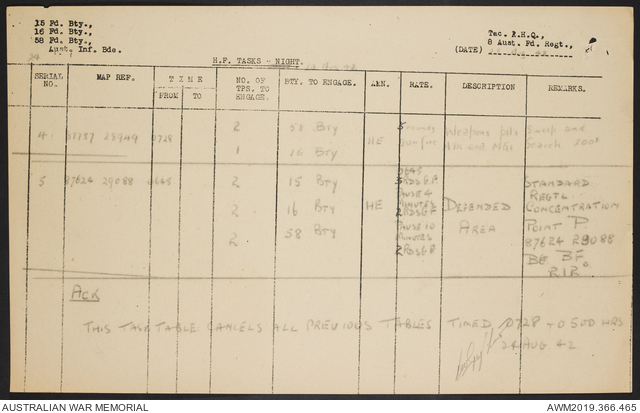 15 Fd. Bty.,
16 Fd. Bty.,
58 Fd. Bty.,
Aust. Inf. Bde.
Tac. R.H.Q.,
8 Aust. Fd. Regt.,
(DATE)
H.F. TASKS - NIGHT.
SERIAL NO. MAP REF. TIME FROM TO NO. OF TPS. TO ENGAGE. BTY. TO ENGAGE. AMN. RATE. DESCRIPTION REMARKS.
4 28949 0728 2 58 Bty HE Weapon pits Sweep and
1 16 Bty and Search 200
5 87624 29088 0645 2 15 Bty 0645 STANDARD
REGTL
2 16 Bty HE MINUTES DEFENDED CONCENTRATION
AREA POINT P
2 58 Bty PAUSE 10 MINUTES 87624 29088
BE BF
ACK
THIS TASK TABLE CANCELS ALL PREVIOUS TABLES TIMED 0728 - 0500 HRS
24 AUG 42
AUSTRALIAN WAR MEMORIAL
AWM2019.366.465